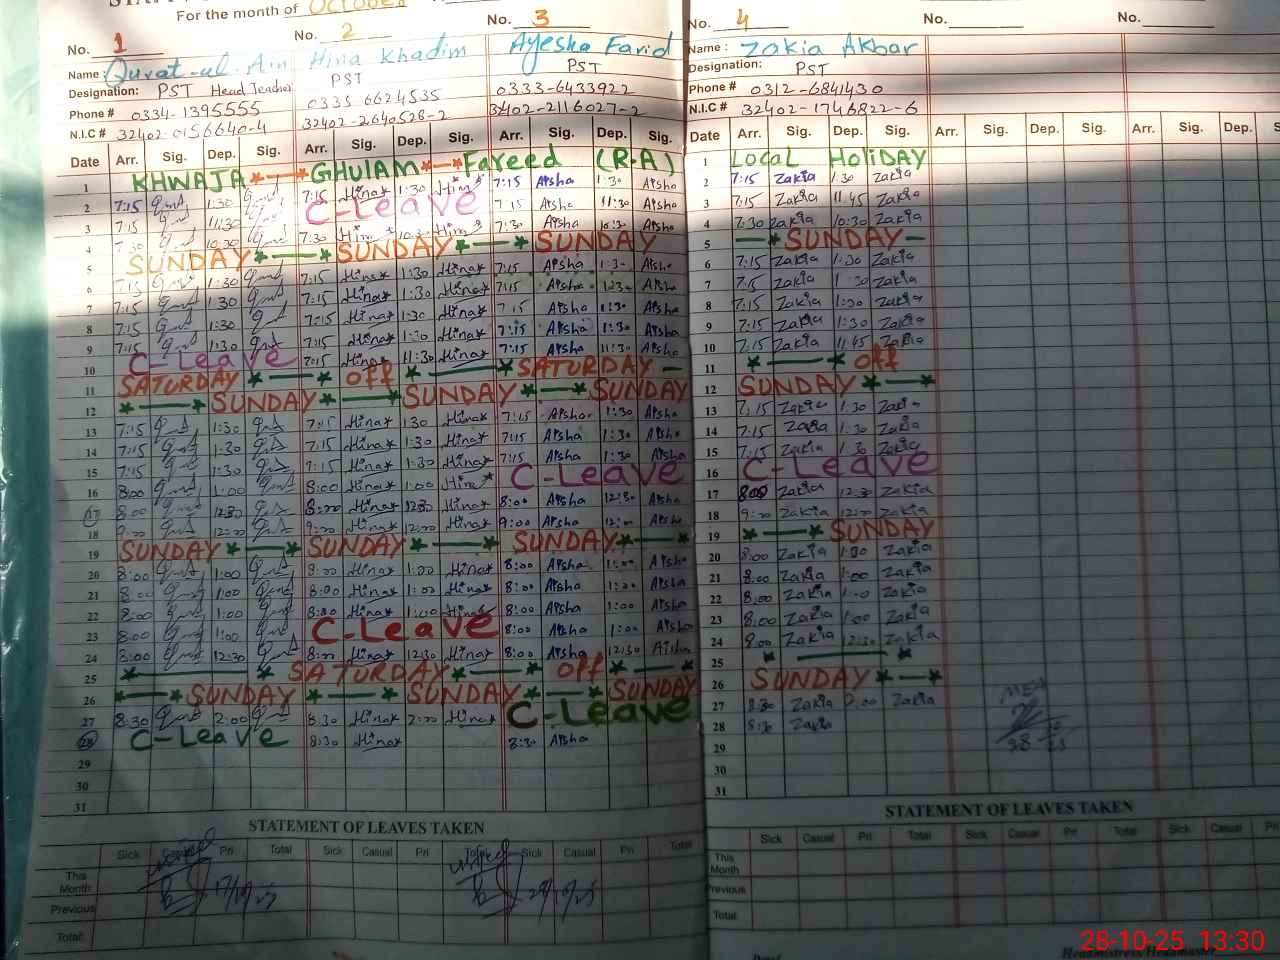 For the month of October
No. 1 No. 2 No. 3 No. 4 No. No.
Name: Qurat-ul-Ain Hina Khadim Ayesha Farid Name: Zakia Akbar
Designation: PST Head Teacher PST PST Designation: PST
Phone # 0334-1395555 0335 6624535 0333-6433922 Phone # 0312-6841430
N.I.C # 32402-0156640-4 32402-2640528-2 32402-2116027-2 N.I.C # 32402-1746822-6
Date Arr. Sig. Dep. Sig. Arr. Sig. Dep. Sig. Arr. Sig. Dep. Sig. Date Arr. Sig. Dep. Sig. Arr. Sig. Dep. Sig. Arr. Sig. Dep.
1 KHWAJA GHULAM Fareed (R.A) 1 Local HoliDAY
2 7:15 1:30 7:15 Hina 1:30 7:15 Aisha 1:30 Aisha 2 7:15 Zakia 1:30 Zakia
3 7:15 11:30 C-Leave 7:15 Aisha 11:30 Aisha 3 7:15 Zakia 11:45 Zakia
4 7:30 10:30 7:30 7:30 Aisha 10:30 Aisha 4 7:30 Zakia 10:30 Zakia
5 SUNDAY SUNDAY SUNDAY 5 SUNDAY
6 7:15 1:30 7:15 Hina 1:30 Hina 7:15 Aisha 1:30 Aisha 6 7:15 Zakia 1:30 Zakia
7 7:15 1:30 7:15 Hina 1:30 Hina 7:15 Aisha 1:30 Aisha 7 7:15 Zakia 1:30 Zakia
8 7:15 1:30 7:15 Hina 1:30 Hina 7:15 Aisha 1:30 Aisha 8 7:15 Zakia 1:30 Zakia
9 7:15 1:30 7:15 Hina 1:30 Hina 7:15 Aisha 1:30 Aisha 9 7:15 Zakia 1:30 Zakia
10 C-Leave 7:15 Hina 11:30 Hina 7:15 Aisha 11:30 Aisha 10 7:15 Zakia 11:45 Zakia
11 SATURDAY off SATURDAY 11 off
12 SUNDAY SUNDAY SUNDAY 12 SUNDAY
13 7:15 1:30 7:15 Hina 1:30 Hina 7:15 Aisha 1:30 Aisha 13 7:15 Zakia 1:30 Zakia
14 7:15 1:30 7:15 Hina 1:30 Hina 7:15 Aisha 1:30 Aisha 14 7:15 Zakia 1:30 Zakia
15 7:15 1:30 7:15 Hina 1:30 Hina 7:15 Aisha 1:30 Aisha 15 7:15 Zakia 1:30 Zakia
16 8:00 1:00 8:00 Hina 1:00 Hina C-Leave 16 C-Leave
17 8:00 12:30 8:00 Hina 12:30 Hina 8:00 Aisha 12:30 Aisha 17 8:00 Zakia 12:30 Zakia
18 9:00 12:00 9:00 Hina 12:00 Hina 9:00 Aisha 12:00 Aisha 18 9:00 Zakia 12:00 Zakia
19 SUNDAY SUNDAY SUNDAY 19 SUNDAY
20 8:00 1:00 8:00 Hina 1:00 Hina 8:00 Aisha 1:00 Aisha 20 8:00 Zakia 1:30 Zakia
21 8:00 1:00 8:00 Hina 1:00 Hina 8:00 Aisha 1:00 Aisha 21 8:00 Zakia 1:00 Zakia
22 8:00 1:00 8:00 Hina 1:00 Hina 8:00 Aisha 1:00 Aisha 22 8:00 Zakia 1:00 Zakia
23 8:00 1:00 C-Leave 8:00 Aisha 1:00 Aisha 23 8:00 Zakia 1:00 Zakia
24 8:00 12:30 8:00 Hina 12:30 Hina 8:00 Aisha 12:30 Aisha 24 8:00 Zakia 12:30 Zakia
25 SATURDAY off 25
26 SUNDAY SUNDAY SUNDAY 26 SUNDAY
27 8:30 2:00 8:30 Hina 2:00 Hina C-Leave 27 8:30 Zakia 2:00 Zakia
28 C-Leave 8:30 Hina 8:30 Aisha 28 8:30 Zakia
29 29
30 30
31 31
STATEMENT OF LEAVES TAKEN STATEMENT OF LEAVES TAKEN
Sick Casual Pri Total Sick Casual Pri Total Sick Casual Pri Total Sick Casual Pri Total Sick Casual Pri Total Sick Casual Pri
This Month This Month
Previous Previous
Total: Total:
28-10-25 13:30